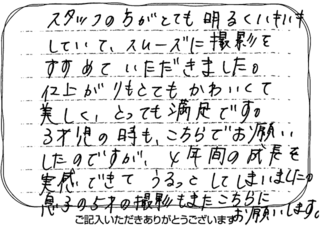 スタッフの方がとても明るくいきいき
していて、スムーズに撮影を
すすめていただきました。
仕上がりもとてもかわいくて
美しく、とっても満足です。
3才児の時も、こちらでお願い
したのですが、4年間の成長を
実感できてうるっとしてしまいました。
息子の5才の撮影もまたこちらに
お願いします。
ご記入いただきありがとうございます